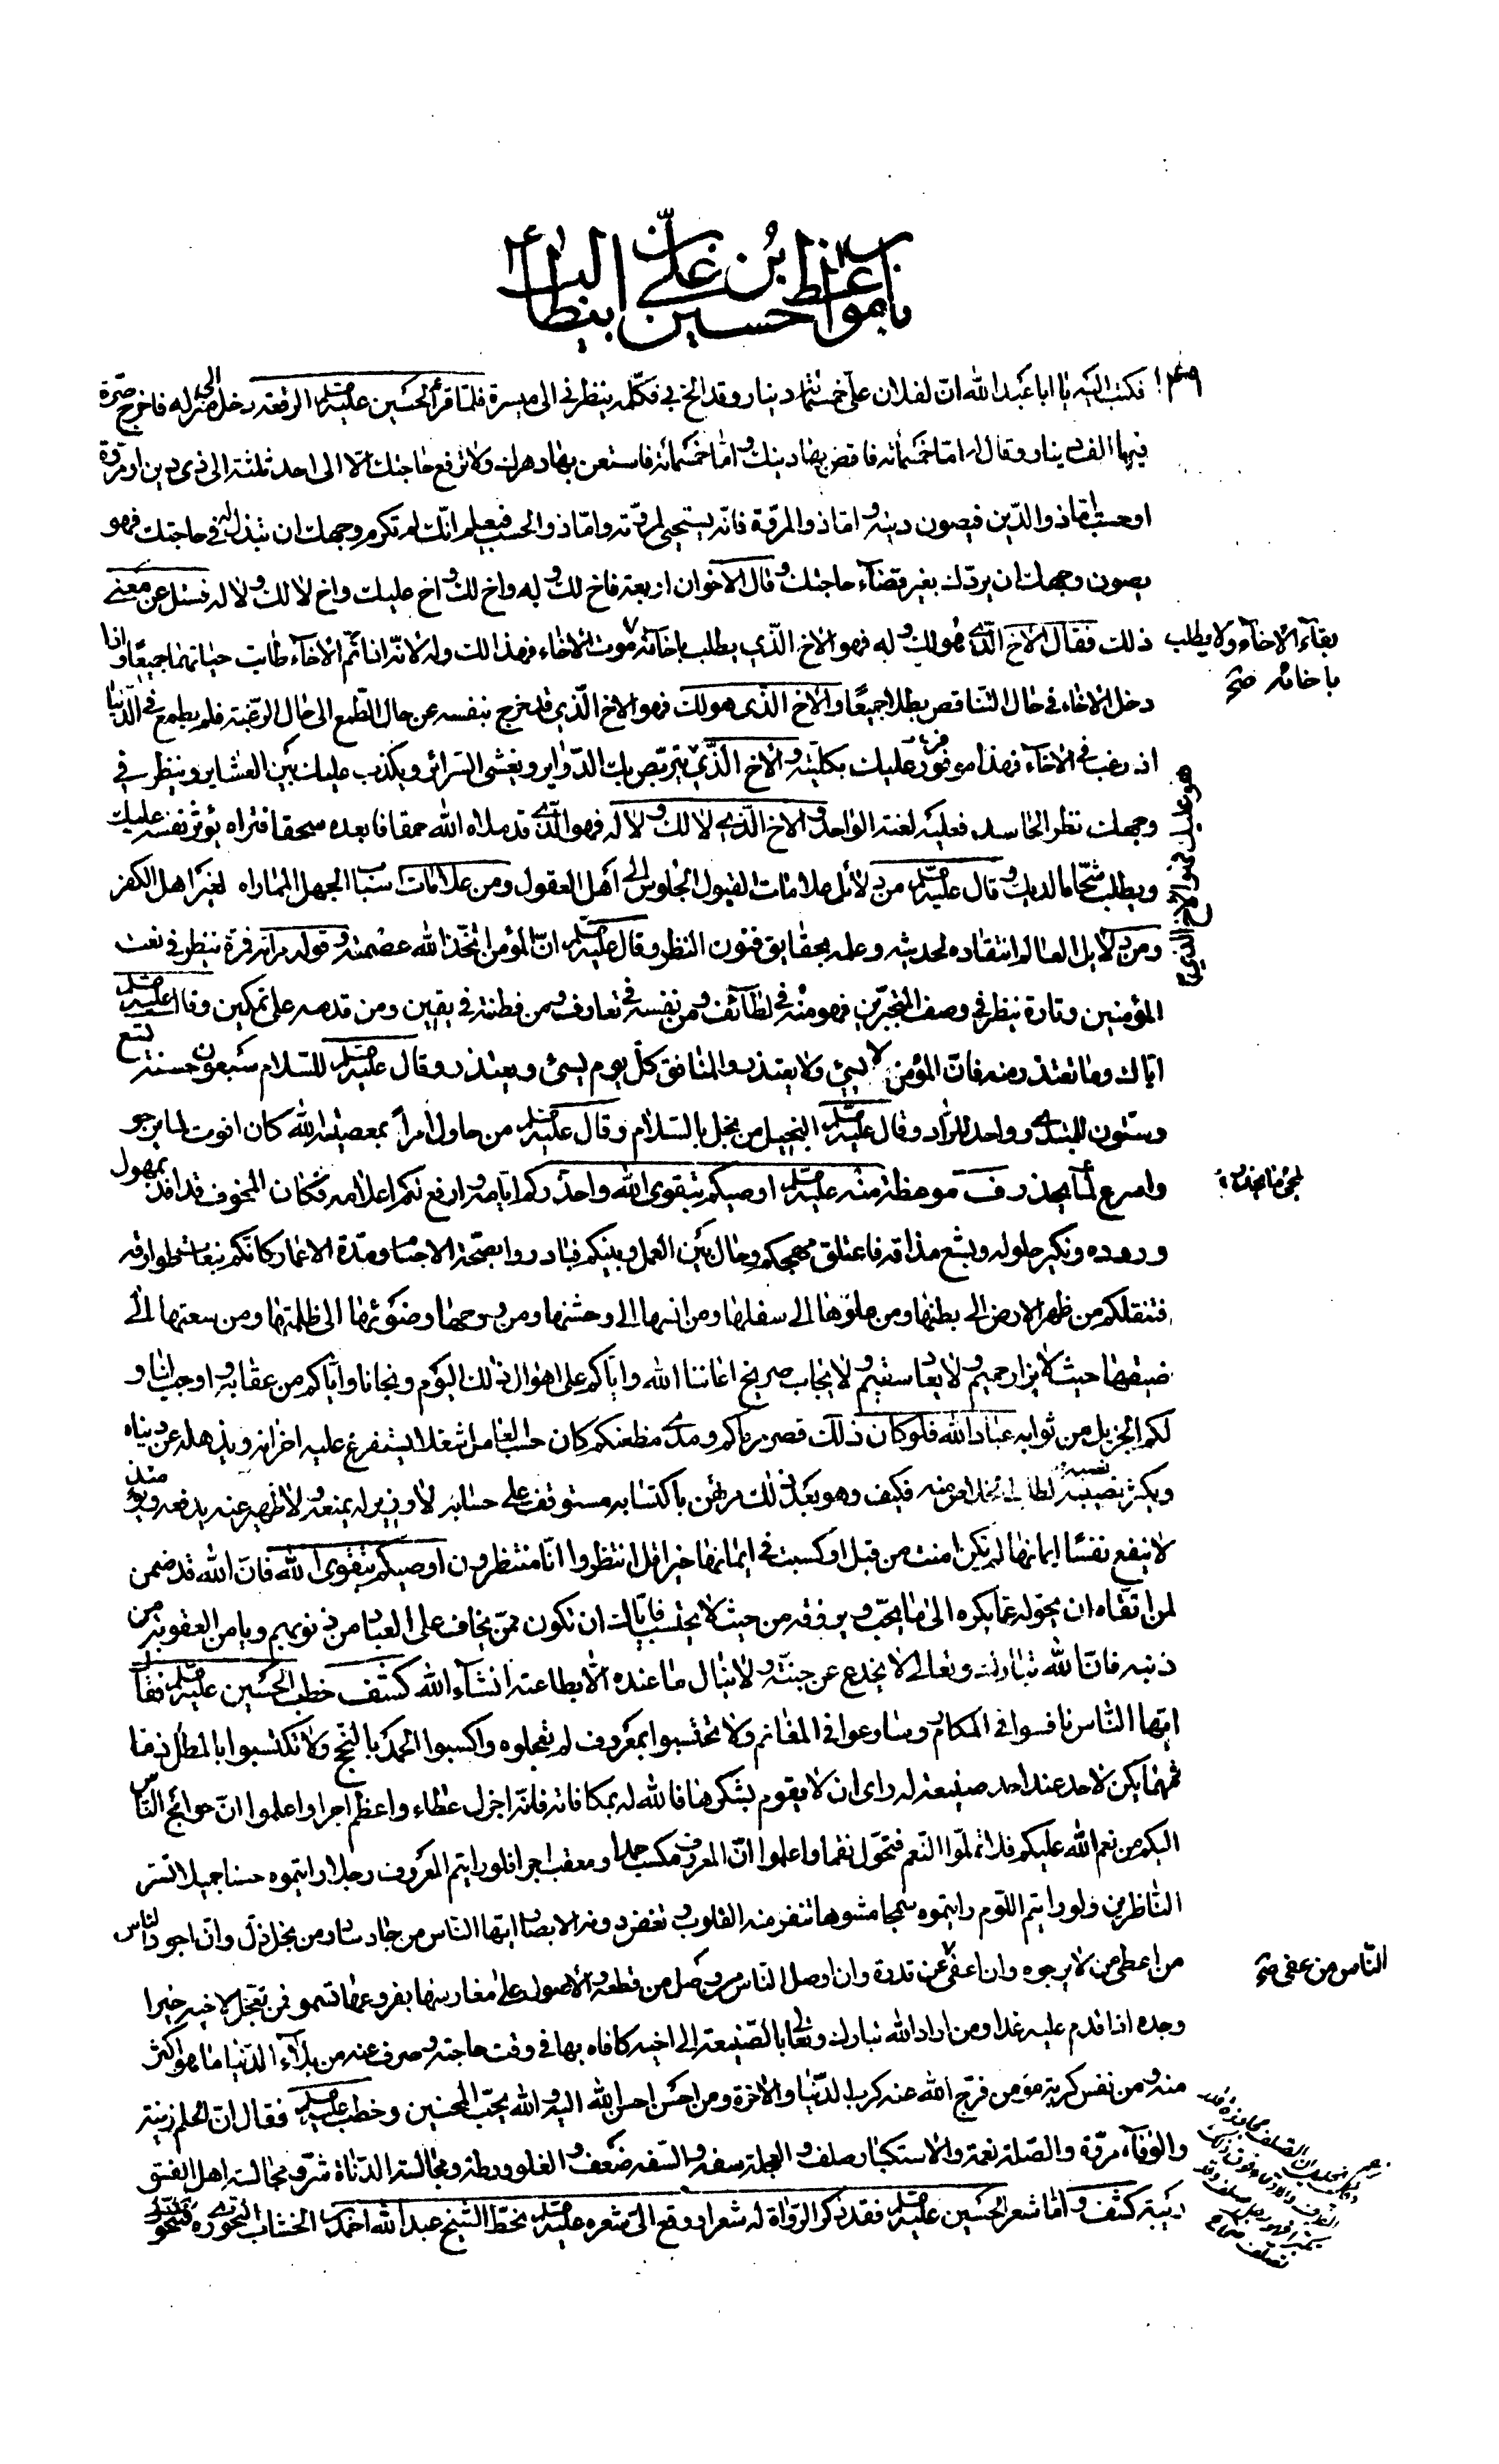 باب مواعظ حسين بن علي بن ابيطالب
فكتب اليه يا ابا عبد الله انّ لفلان علىّ خمسمائة دينار وقد الحّ بي فكلّمه ينظرني الى ميسرة فلمّا قرأ الحسين عليه صلم الرقعة دخل الى منزله فاخرج صرّة
فيها الف دينار وقال له امّا خمسمائة فاقض بها دينك وامّا خمسمائة فاستعن بها دهرك ولا ترفع حاجتك الّا الى احد ثلثة الى ذى دين او مروّة
او حسب امّا ذو الدّين فيصون دينه وامّا ذو المروّة فانّه يستحيى لمروّته وامّا ذو الحسب فيعلم انّك لم تكرم وجهك ان تبذله له في حاجتك فهو
يصون وجهك ان يردّك بغير قضاء حاجتك وقال الاخوان اربعة فاخ لك وله واخ لك واخ عليك واخ لا لك ولا له فسئل عن معنى
ذلك فقال الاخ الّذى هو لك وله فهو الاخ الّذي يطلب باخائه موت الاخاء فهذا لك وله لانّه اذا تمّ الاخاء طابت حياتهما جميعًا واذا
بقاء الاخاء ولا يطلب
باخائه صح
دخل الاخاء في حال التناقص بطلا جميعًا والاخ الذى هو لك فهو الاخ الّذي قد خرج بنفسه عن حال الطّمع الى حال الرغبة فلم يطمع في الدّنيا
اذ رغب في الاخاء فهذا موفور عليك بكليّته والاخ الذّي يتربّص بك الدّواير ويغشى السّرائر ويكذب عليك بين العشاير وينظر في
هو عليك فهو الاخ الذي
وجهك نظر الحاسد فعليه لعنة الواحد والاخ الّذى لا لك ولا له فهو الّذى قد ملاه الله حمقا فابعده سحقا فتراه يؤثر نفسه عليك
ويطلب شحّا ما لديك وقال عليه صلم من دلائل علامات القبول الجلوس الى اهل العقول ومن علامات اسباب الجهل المماراه لغير اهل الكفر
ومن دلايل العالم انتقاده لحديثه وعلمه بحقايق فنون النظر وقال عليه صلم انّ المؤمن اتّخذ الله عصمته وقوله مراته فمرة ينظر في نعت
المؤمنين وتارة ينظر في وصف المتجبّرين فهو منه في لطائف ومن نفسه في تعارف ومن فطنته في يقين ومن قدسه على تمكين وقال عليه صلم
ايّاك وما تعتذر منه فانّ المؤمن لا يسئ ولا يعتذر والمنافق كلّ يوم يسئ ويعتذر وقال عليه صلم للسّلام سبعون حسنة تسع
وستّون للمبتدى وواحد للرّاد وقال عليه صلم البخيل من بخل بالسّلام وقال عليه صلم من حاول امراً بمعصية الله كان افوت لما يرجو
واسرع لما يحذر ف موعظة منه عليه صلم اوصيكم بتقوى الله واحذركم ايّامه وارفع لكم اعلامه فكان المخوف قد افد بمهول
لمجئ ما يحذر
وروده ونكير حلوله وبشع مذاقه فاعتلق مهجكم وحال بين العمل وبينكم فبادروا بصحّة الاجسام ومدّة الاعمار كانّكم ببغتات طوارقه
فتنقلكم من ظهر الارض الى بطنها ومن علوّها الى سفلها ومن انسها الى وحشتها ومن روحها وضوئها الى ظلمتها ومن سعتها الى
ضيقها حيث لا يزار حميم ولا يعاد سقيم ولا يجاب صريخ اعاننا الله وايّاكم على اهوال ذلك اليوم ونجانا وايّاكم من عقابه واوجب لنا و
لكم الجزيل من ثوابه عباد الله فلو كان ذلك قصر مرماكم ومدى مظعنكم كان حسب العامل شغلا يستفرغ عليه احزانه ويذهله عن دنياه
ويكثر نصبه لطلب الخلاص منه فكيف وهو بعد ذلك مرتهن باكتسابه مستوقف على حسابه لا وزير له يمنعه ولا ظهير عنه يدفعه ويومئذ
لا ينفع نفسًا ايمانها لم تكن امنت من قبل او كسبت في ايمانها خيرا قل انتظروا انّا منتظرون اوصيكم بتقوى الله فانّ الله قد ضمن
لمن اتقاه ان يحوّله عمّا يكره الى ما يحبّ ويرزقه من حيث لا يحتسب فايّاك ان تكون ممّن يخاف على العباد من ذنوبهم ويامن العقوبة من
ذنبه فانّ الله تبارك وتعالى لا يخدع عن جنّته ولا ينال ما عنده الّا بطاعته انشاء الله كشف خطب الحسين عليه صلم فقال
ايّها النّاس نافسوا في المكارم وسارعوا في المغانم ولا تحتسبوا بمعروف لم تعجلوه واكسبوا الحمد بالنّجح ولا تكتسبوا بالمطل ذمّا
فمهما يكن لاحد عند احد صنيعة له راى ان لا يقوم بشكرها فالله له بمكافاته فانّه اجزل عطاء واعظم اجرا واعلموا انّ حوائج النّاس
اليكم من نعم الله عليكم فلا تملّوا النّعم فتحوّل نقما واعلموا انّ المعروف مكسب حمدا ومعقب اجرا فلو رايتم المعروف رجلا رايتموه حسنا جميلا تسرّ
النّاظرين ولو رايتم اللّوم رايتموه سمجا مشوها تنفر منه القلوب وتغض دونه الابصار ايّها النّاس من جاد ساد ومن بخل رذل وانّ اجود النّاس
من اعطى من لا يرجوه وان اعفى عن قدرة وان اوصل النّاس من وصل من قطعه والاصول على مغارسها بفروعها تسمو فمن تعجّل لاخيه خيرا
النّاس من عفى صح
وجده اذا قدم عليه غدا ومن اراد الله تبارك وتعالى بالصّنيعة الى اخيه كافاه بها في وقت حاجته وصرف عنه من بلاء الدّنيا ما هو اكثر
منه ومن نفس كربة مؤمن فرّج الله عنه كرب الدّنيا والاخرة ومن احسن احسن الله اليه والله يحبّ المحسنين وخطب عليه صلم فقال انّ الحلم زينة
والوفاء مروّة والصّلة نعمة والاستكبار صلف والعجلة سفه والسّفه ضعف والغلو ورطة ومجالسة الدّناة شرّ ومجالسة اهل الفسق
ريبة كشف وامّا شعر الحسين عليه صلم فقد ذكر الرّواة له شعرا ووقع الىّ شعره عليه صلم بخطّ الشّيخ عبد الله احمد الخشاب النّحوى